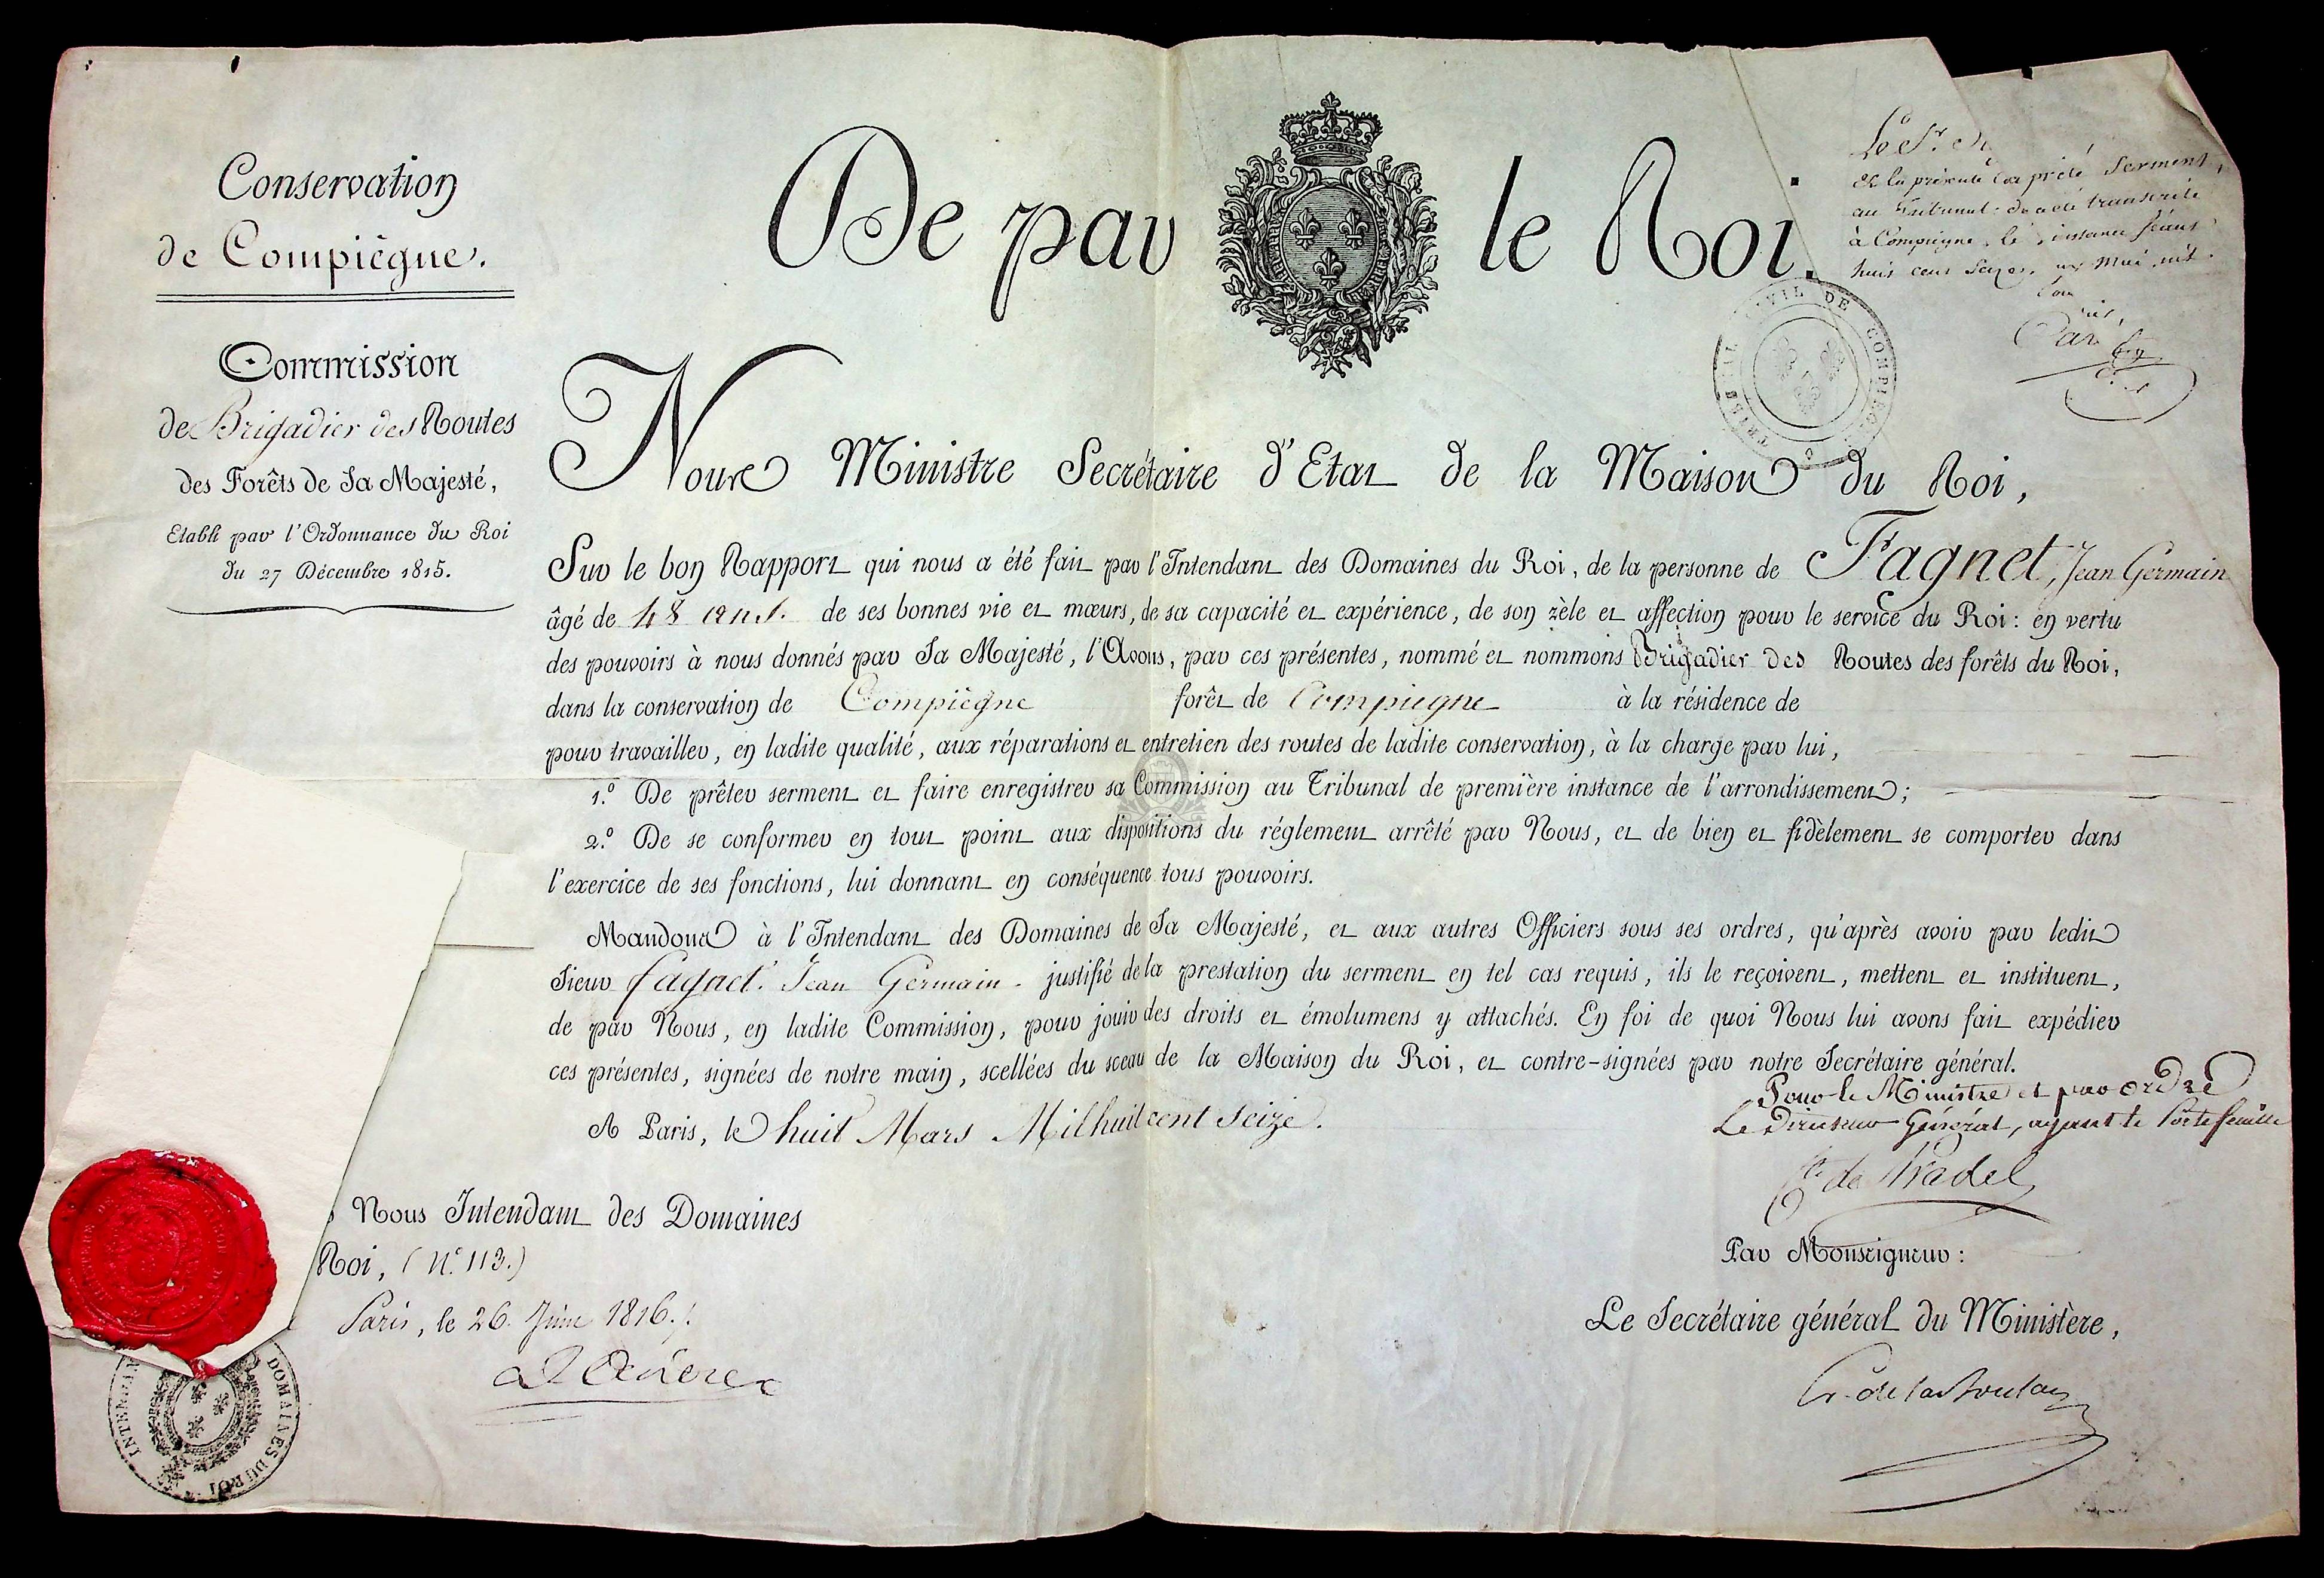 Conservation
de Compiègne.
Commission
de Brigadier des Routes
des Forêts de Sa Majesté,
Etabli par l'Ordonnance du Roi
du 27 Décembre 1815.
De par le Roi.
Le Sr.
a prêté Serment
au tribunal
à Compiegne, le
huit cent Seize
TRIBUNAL CIVIL DE COMPIEGNE
Nous Ministre Secrétaire d'Etat de la Maison du Roi,
Sur le bon Rapport qui nous a été fait par l'Intendant des Domaines du Roi, de la personne de Fagnet, Jean Germain
âgé de 48 ans. de ses bonnes vie et mœurs, de sa capacité et expérience, de son zèle et affection pour le service du Roi : en vertu
des pouvoirs à nous donnés par Sa Majesté, l'Avons, par ces présentes, nommé et nommons Brigadier des Routes des forêts du Roi,
dans la conservation de Compiègne forêt de Compiegne à la résidence de
pour travailler, en ladite qualité, aux réparations et entretien des routes de ladite conservation, à la charge par lui,
1.º De prêter serment et faire enregistrer sa Commission au Tribunal de première instance de l'arrondissement ;
2.º De se conformer en tout point aux dispositions du réglement arrêté par Nous, et de bien et fidèlement se comporter dans
l'exercice de ses fonctions, lui donnant en conséquence tous pouvoirs.
Mandons à l'Intendant des Domaines de Sa Majesté, et aux autres Officiers sous ses ordres, qu'après avoir par ledit
Sieur fagnet. Jean Germain. justifié de la prestation du serment en tel cas requis, ils le reçoivent, mettent et instituent,
de par Nous, en ladite Commission, pour jouir des droits et émolumens y attachés. En foi de quoi Nous lui avons fait expédier
ces présentes, signées de notre main, scellées du sceau de la Maison du Roi, et contre-signées par notre Secrétaire général.
A Paris, le huit Mars Mil huit cent Seize.
Pour le Ministre et par ordre
Le Directeur Général, ayant le Portefeuille
Cte de Pradel
Par Monseigneur :
Le Secrétaire général du Ministère,
Nous Intendant des Domaines
Roi, (N.º 113.)
Paris, le 26. Juin 1816.
INTENDAN DOMAINES DU ROI